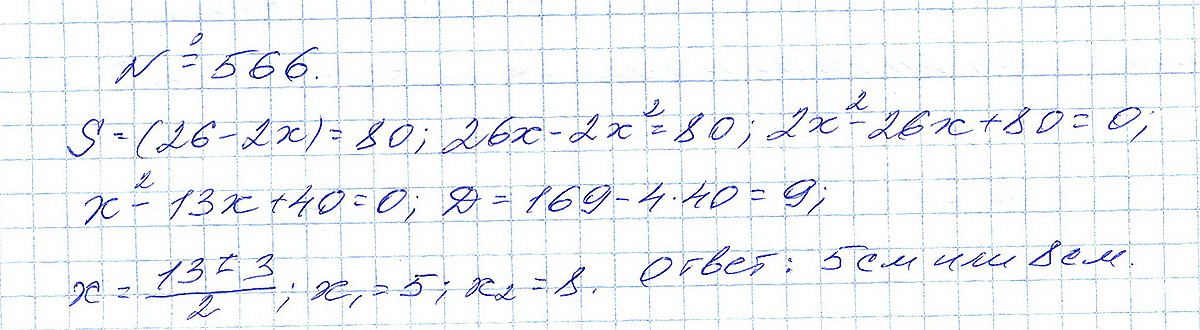 № 566.
S=(26-2x)=80; 26x-2x²=80; 2x²-26x+80=0;
x²-13x+40=0; D=169-4·40=9;
x = (13±3)/2; x₁=5; x₂=8. Ответ: 5см или 8см.